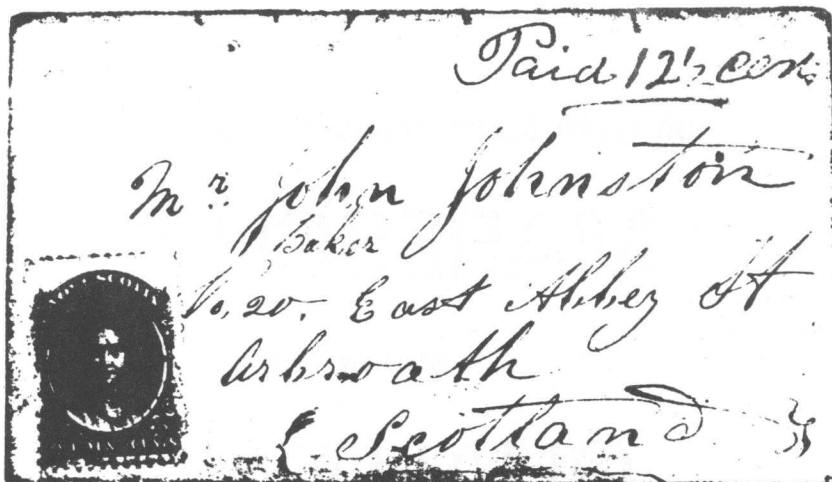 Paid 12½ cen
Mr. John Johnston
Baker
No. 20. East Abbey St
Arbroath
Scotland